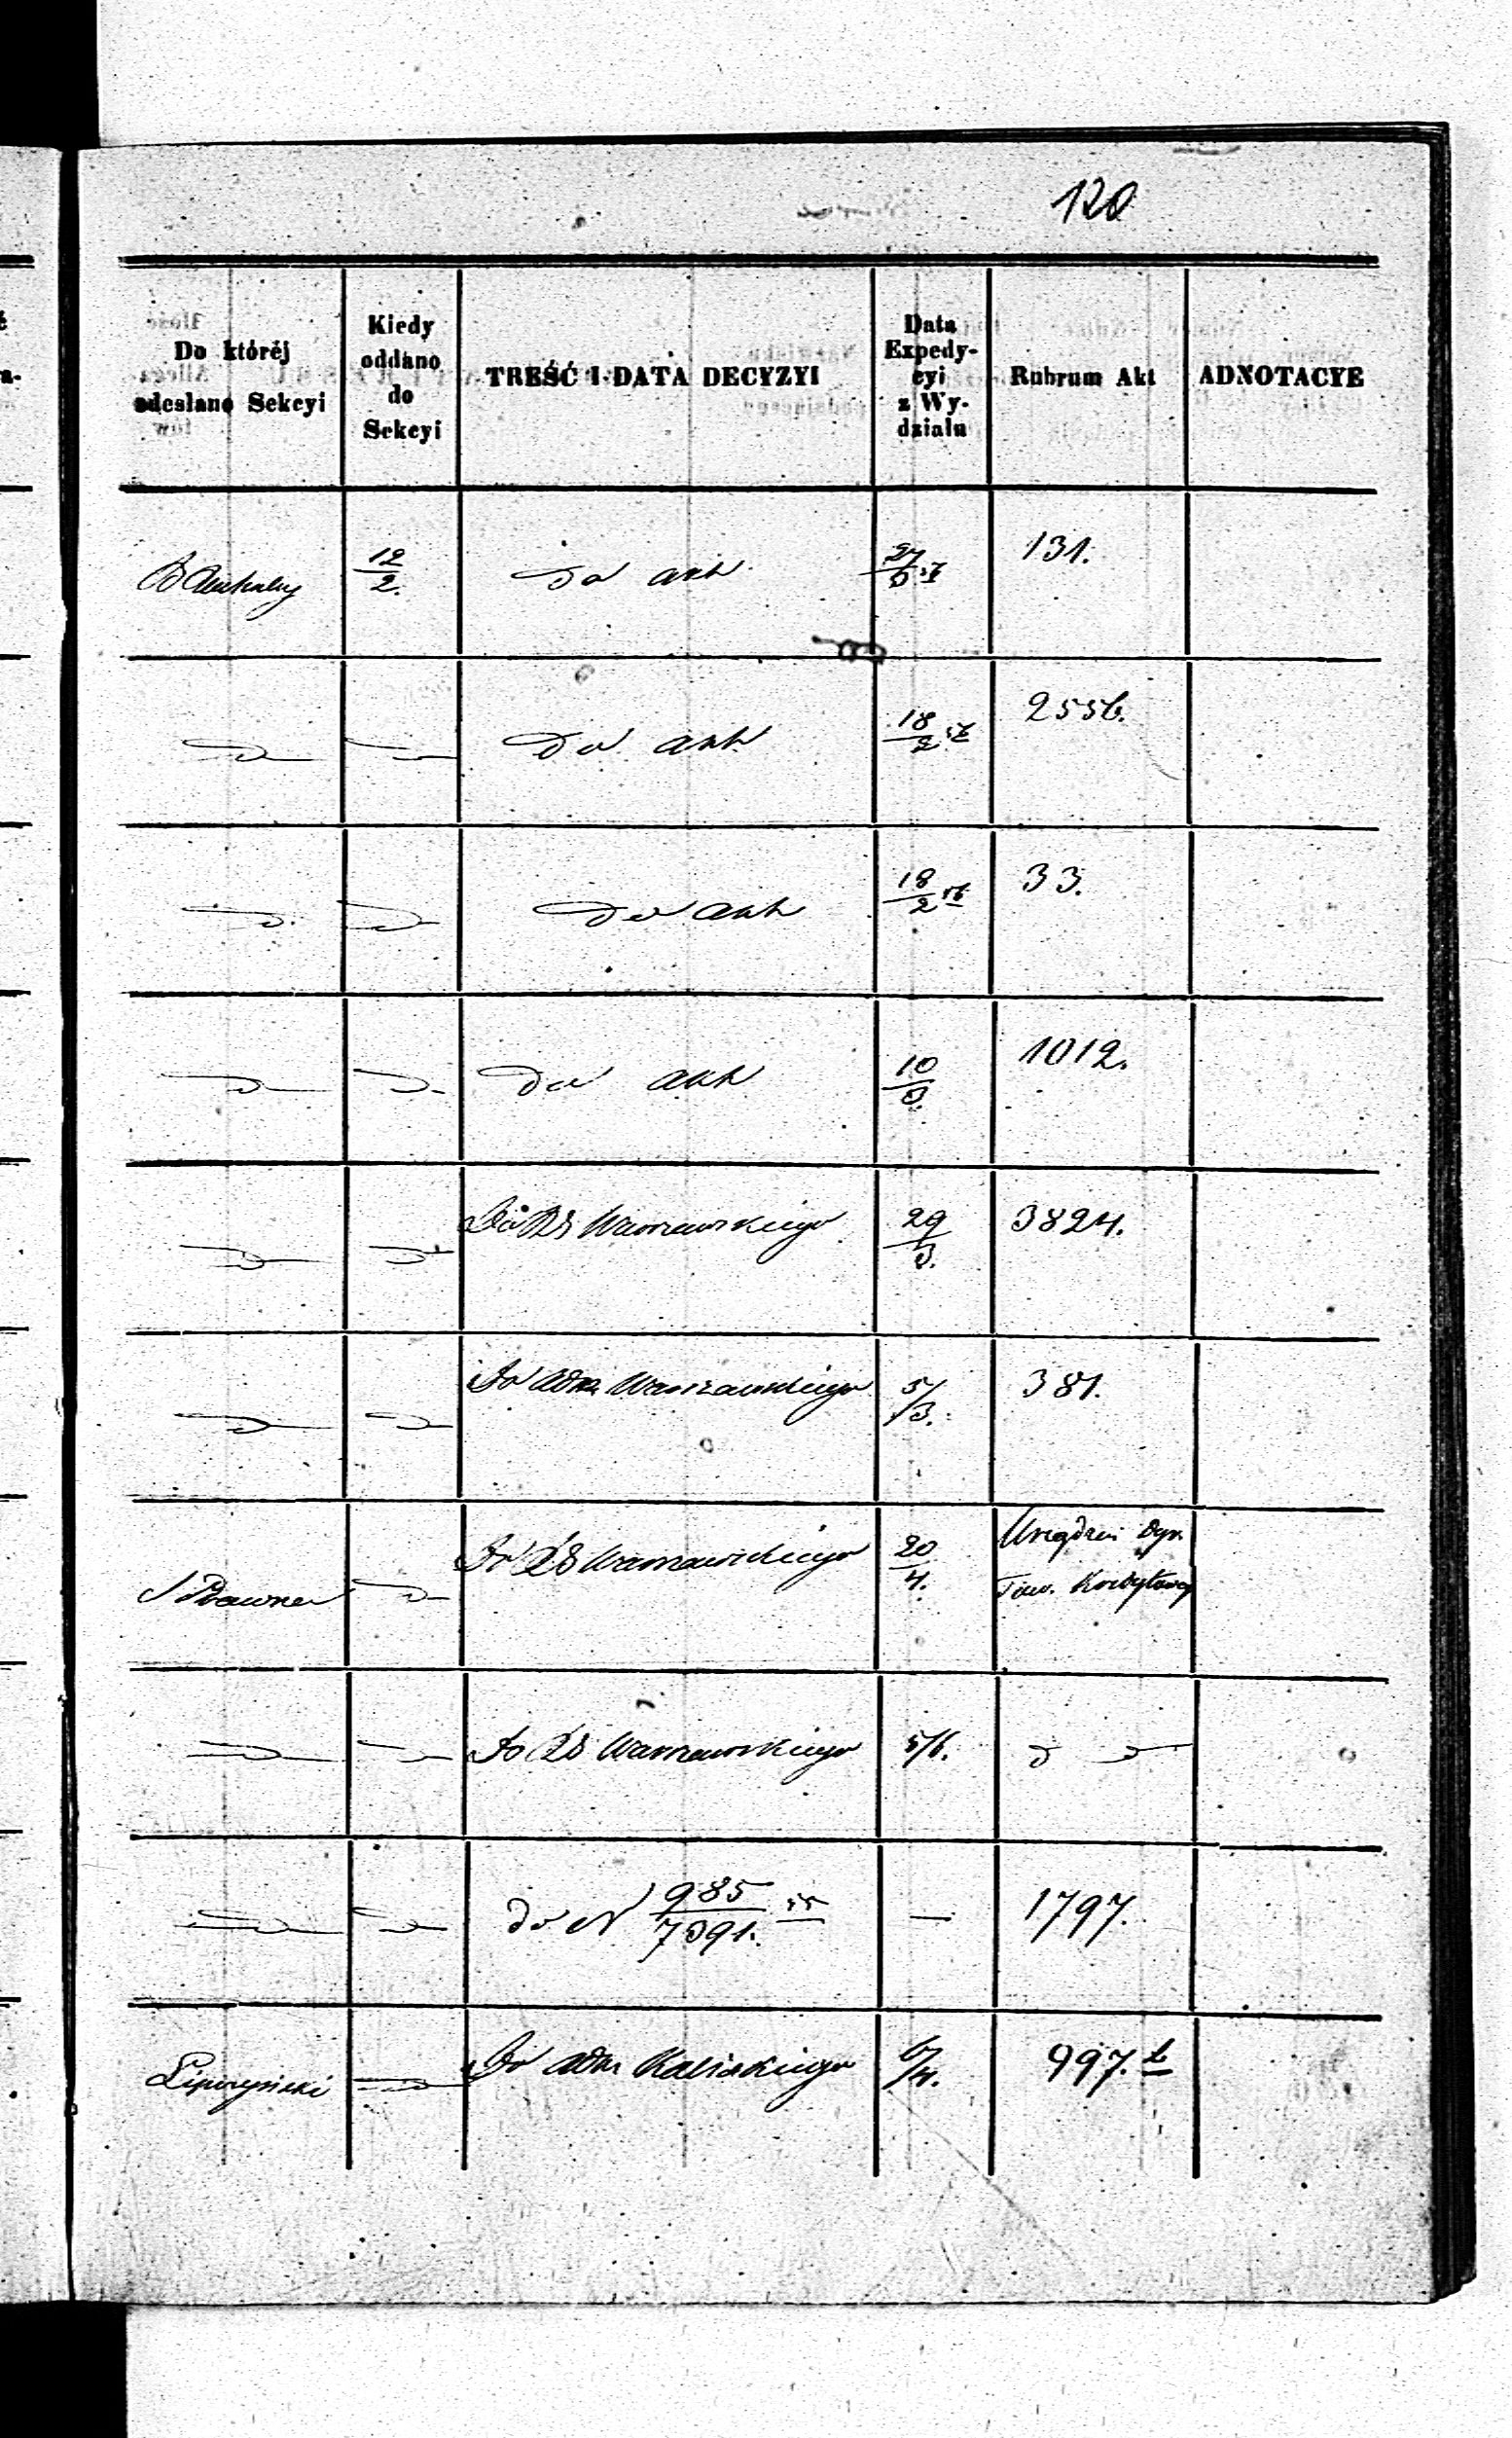 120
Do któréj odesłano Sekcyi | Kiedy oddano do Sekcyi | TREŚĆ I DATA DECYZYI | Data Expedycyi z Wydziału | Rubrum Akt | ADNOTACYE
12/2. | do akt | 131.
do akt | 18/2 | 2556.
do akt | 18/2 56 | 33.
do akt | 10/3. | 1012.
Do RG Warszawskiego | 29/3. | 3824.
Do Adm Warszawskiego | 5/3. | 381.
Prawna | Do RG Warszawskiego | 20/4. | Urządzen. Dyr. Tow. Kredytowej
Do RG Warszawskiego | 5/6. | d
do N 985/7391. 55 | — | 1797.
Lipczyński | Do Adm Kaliskiego | 6/4. | 997.